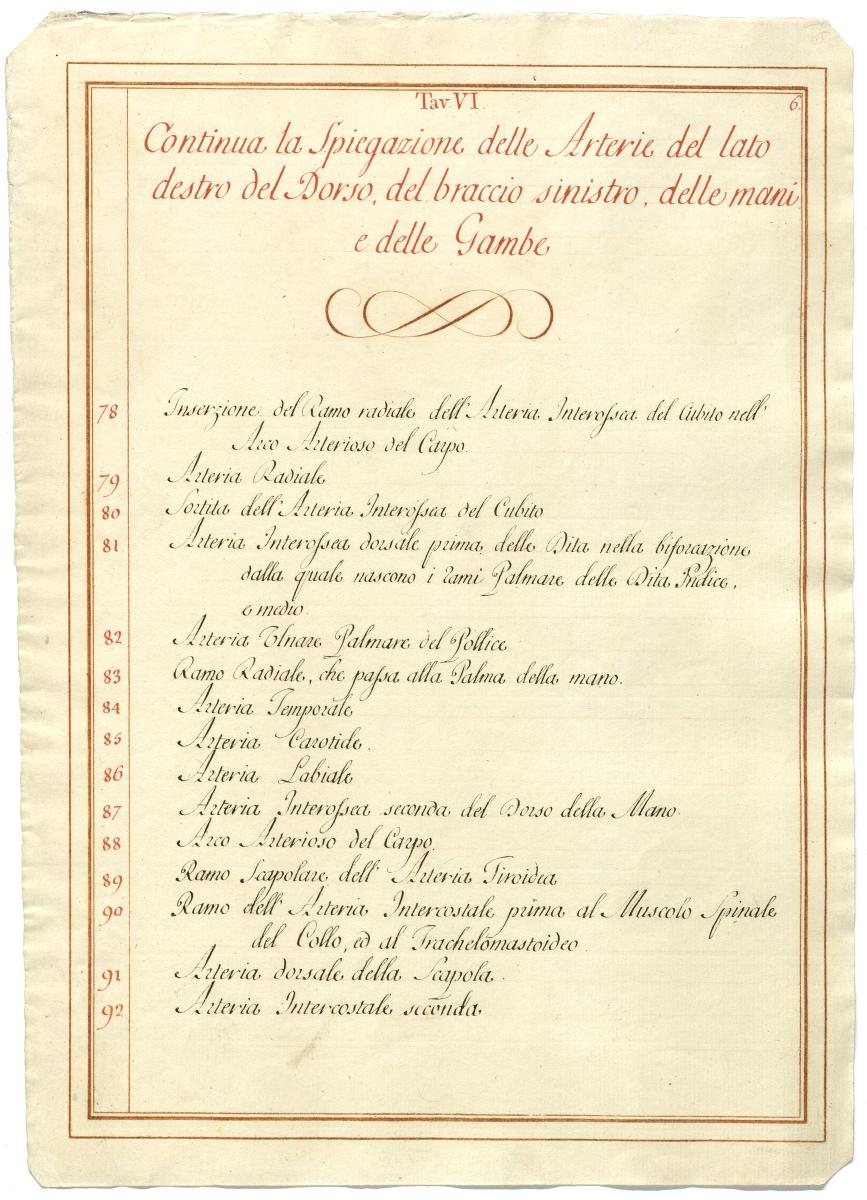 Tav. VI.
6.
Continua la Spiegazione delle Arterie del lato
destro del Dorso, del braccio sinistro, delle mani
e delle Gambe
78 Inserzione del Ramo radiale dell' Arteria Interossea del Cubito nell'
Arco Arterioso del Carpo.
79 Arteria Radiale
80 Sortita dell' Arteria Interossea del Cubito
81 Arteria Interossea dorsale prima delle Dita nella biforcazione
dalla quale nascono i rami Palmare delle Dita Indice,
e medio.
82 Arteria Ulnare Palmare del Pollice
83 Ramo Radiale, che passa alla Palma della mano.
84 Arteria Temporale
85 Arteria Carotide.
86 Arteria Labiale
87 Arteria Interossea seconda del Dorso della Mano.
88 Arco Arterioso del Carpo.
89 Ramo Scapolare dell' Arteria Tiroidea
90 Ramo dell' Arteria Intercostale prima al Muscolo Spinale
del Collo, ed al Trachelomastoideo.
91 Arteria dorsale della Scapola.
92 Arteria Intercostale seconda